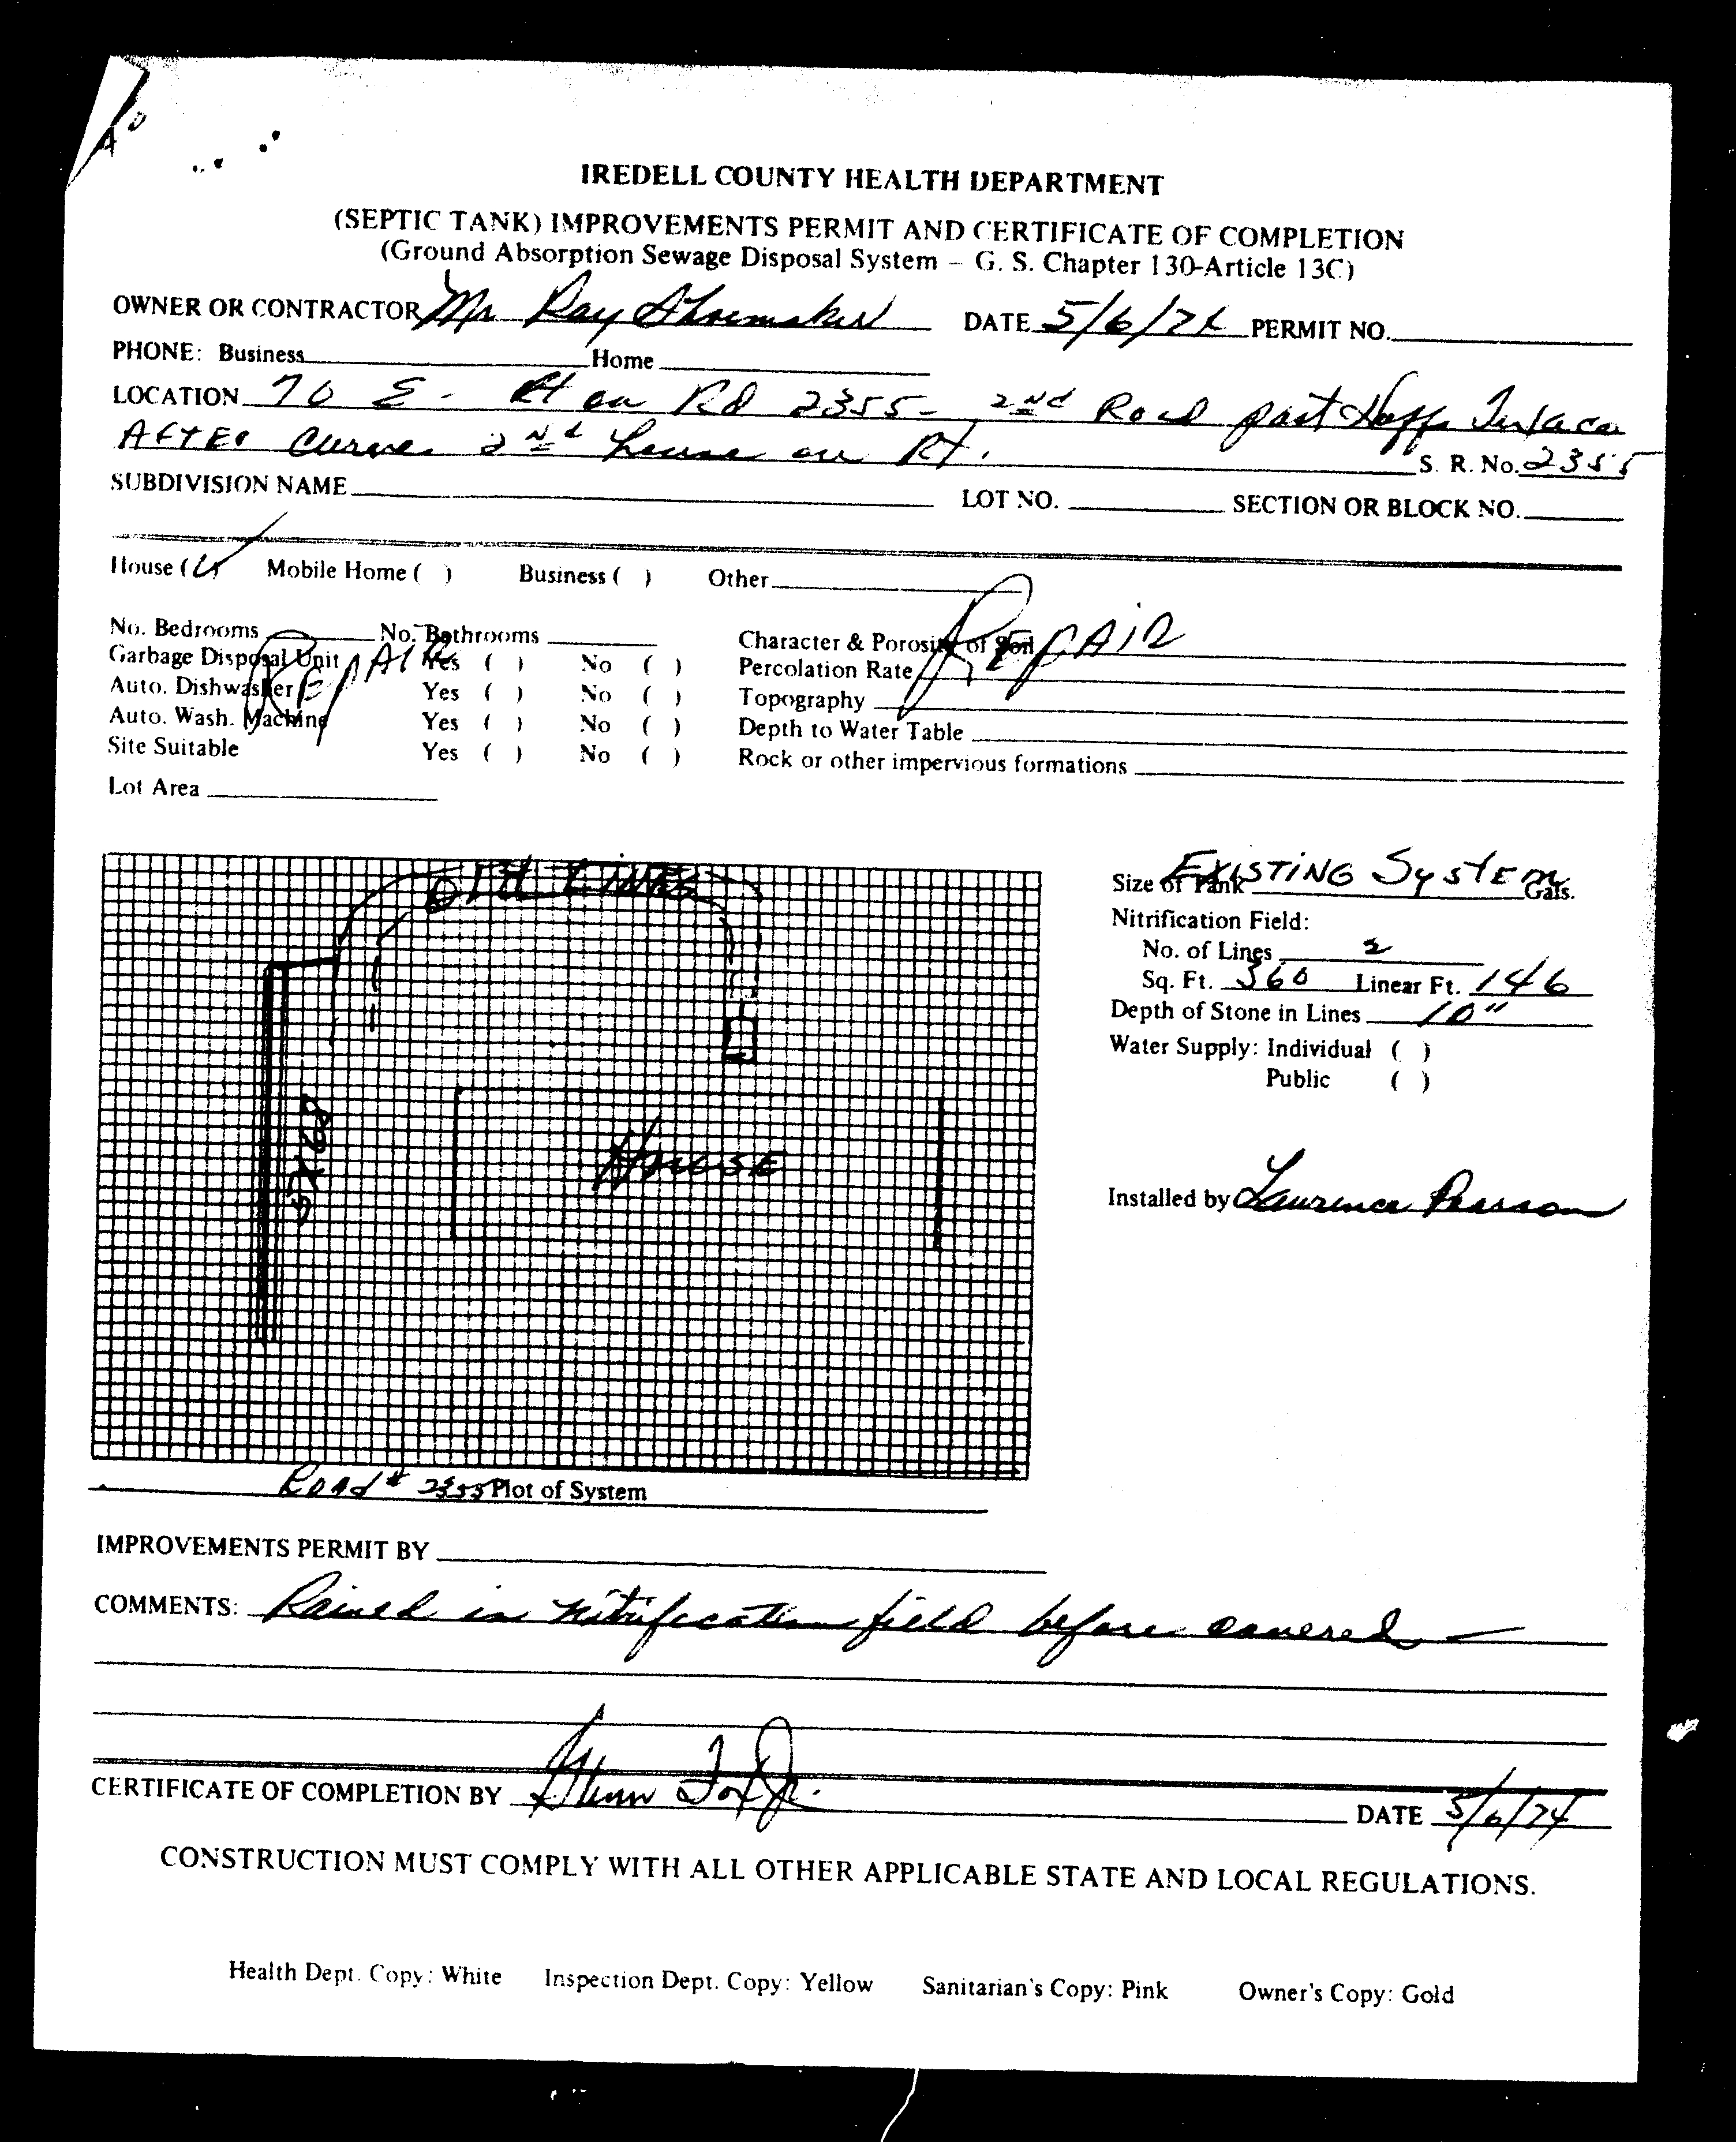 IREDELL COUNTY HEALTH DEPARTMENT
(SEPTIC TANK) IMPROVEMENTS PERMIT AND CERTIFICATE OF COMPLETION
(Ground Absorption Sewage Disposal System – G. S. Chapter 130-Article 13C)
OWNER OR CONTRACTOR Mr Ray Shoemaker DATE 5/6/74 PERMIT NO.
PHONE: Business Home
LOCATION 70 E - Rt on Rd 2355 - 2nd Road past
AFTER Curve 2nd house on Rt. S. R. No. 2355
SUBDIVISION NAME LOT NO. SECTION OR BLOCK NO.
House (✓) Mobile Home ( ) Business ( ) Other
No. Bedrooms No. Bathrooms Character & Porosity of Soil REPAIR
Garbage Disposal Unit REPAIR Yes ( ) No ( ) Percolation Rate
Auto. Dishwasher Yes ( ) No ( ) Topography
Auto. Wash. Machine Yes ( ) No ( ) Depth to Water Table
Site Suitable Yes ( ) No ( ) Rock or other impervious formations
Lot Area
OLD LINES
3X68
HOUSE
Size of Tank EXISTING SYSTEM Gals.
Nitrification Field:
No. of Lines 2
Sq. Ft. 360 Linear Ft. 146
Depth of Stone in Lines 10"
Water Supply: Individual ( )
Public ( )
Installed by Laurence Pearson
Road # 2355 Plot of System
IMPROVEMENTS PERMIT BY
COMMENTS: Rained in nitrification field before covered –
CERTIFICATE OF COMPLETION BY Glenn Fox Jr. DATE 5/6/74
CONSTRUCTION MUST COMPLY WITH ALL OTHER APPLICABLE STATE AND LOCAL REGULATIONS.
Health Dept. Copy: White Inspection Dept. Copy: Yellow Sanitarian's Copy: Pink Owner's Copy: Gold